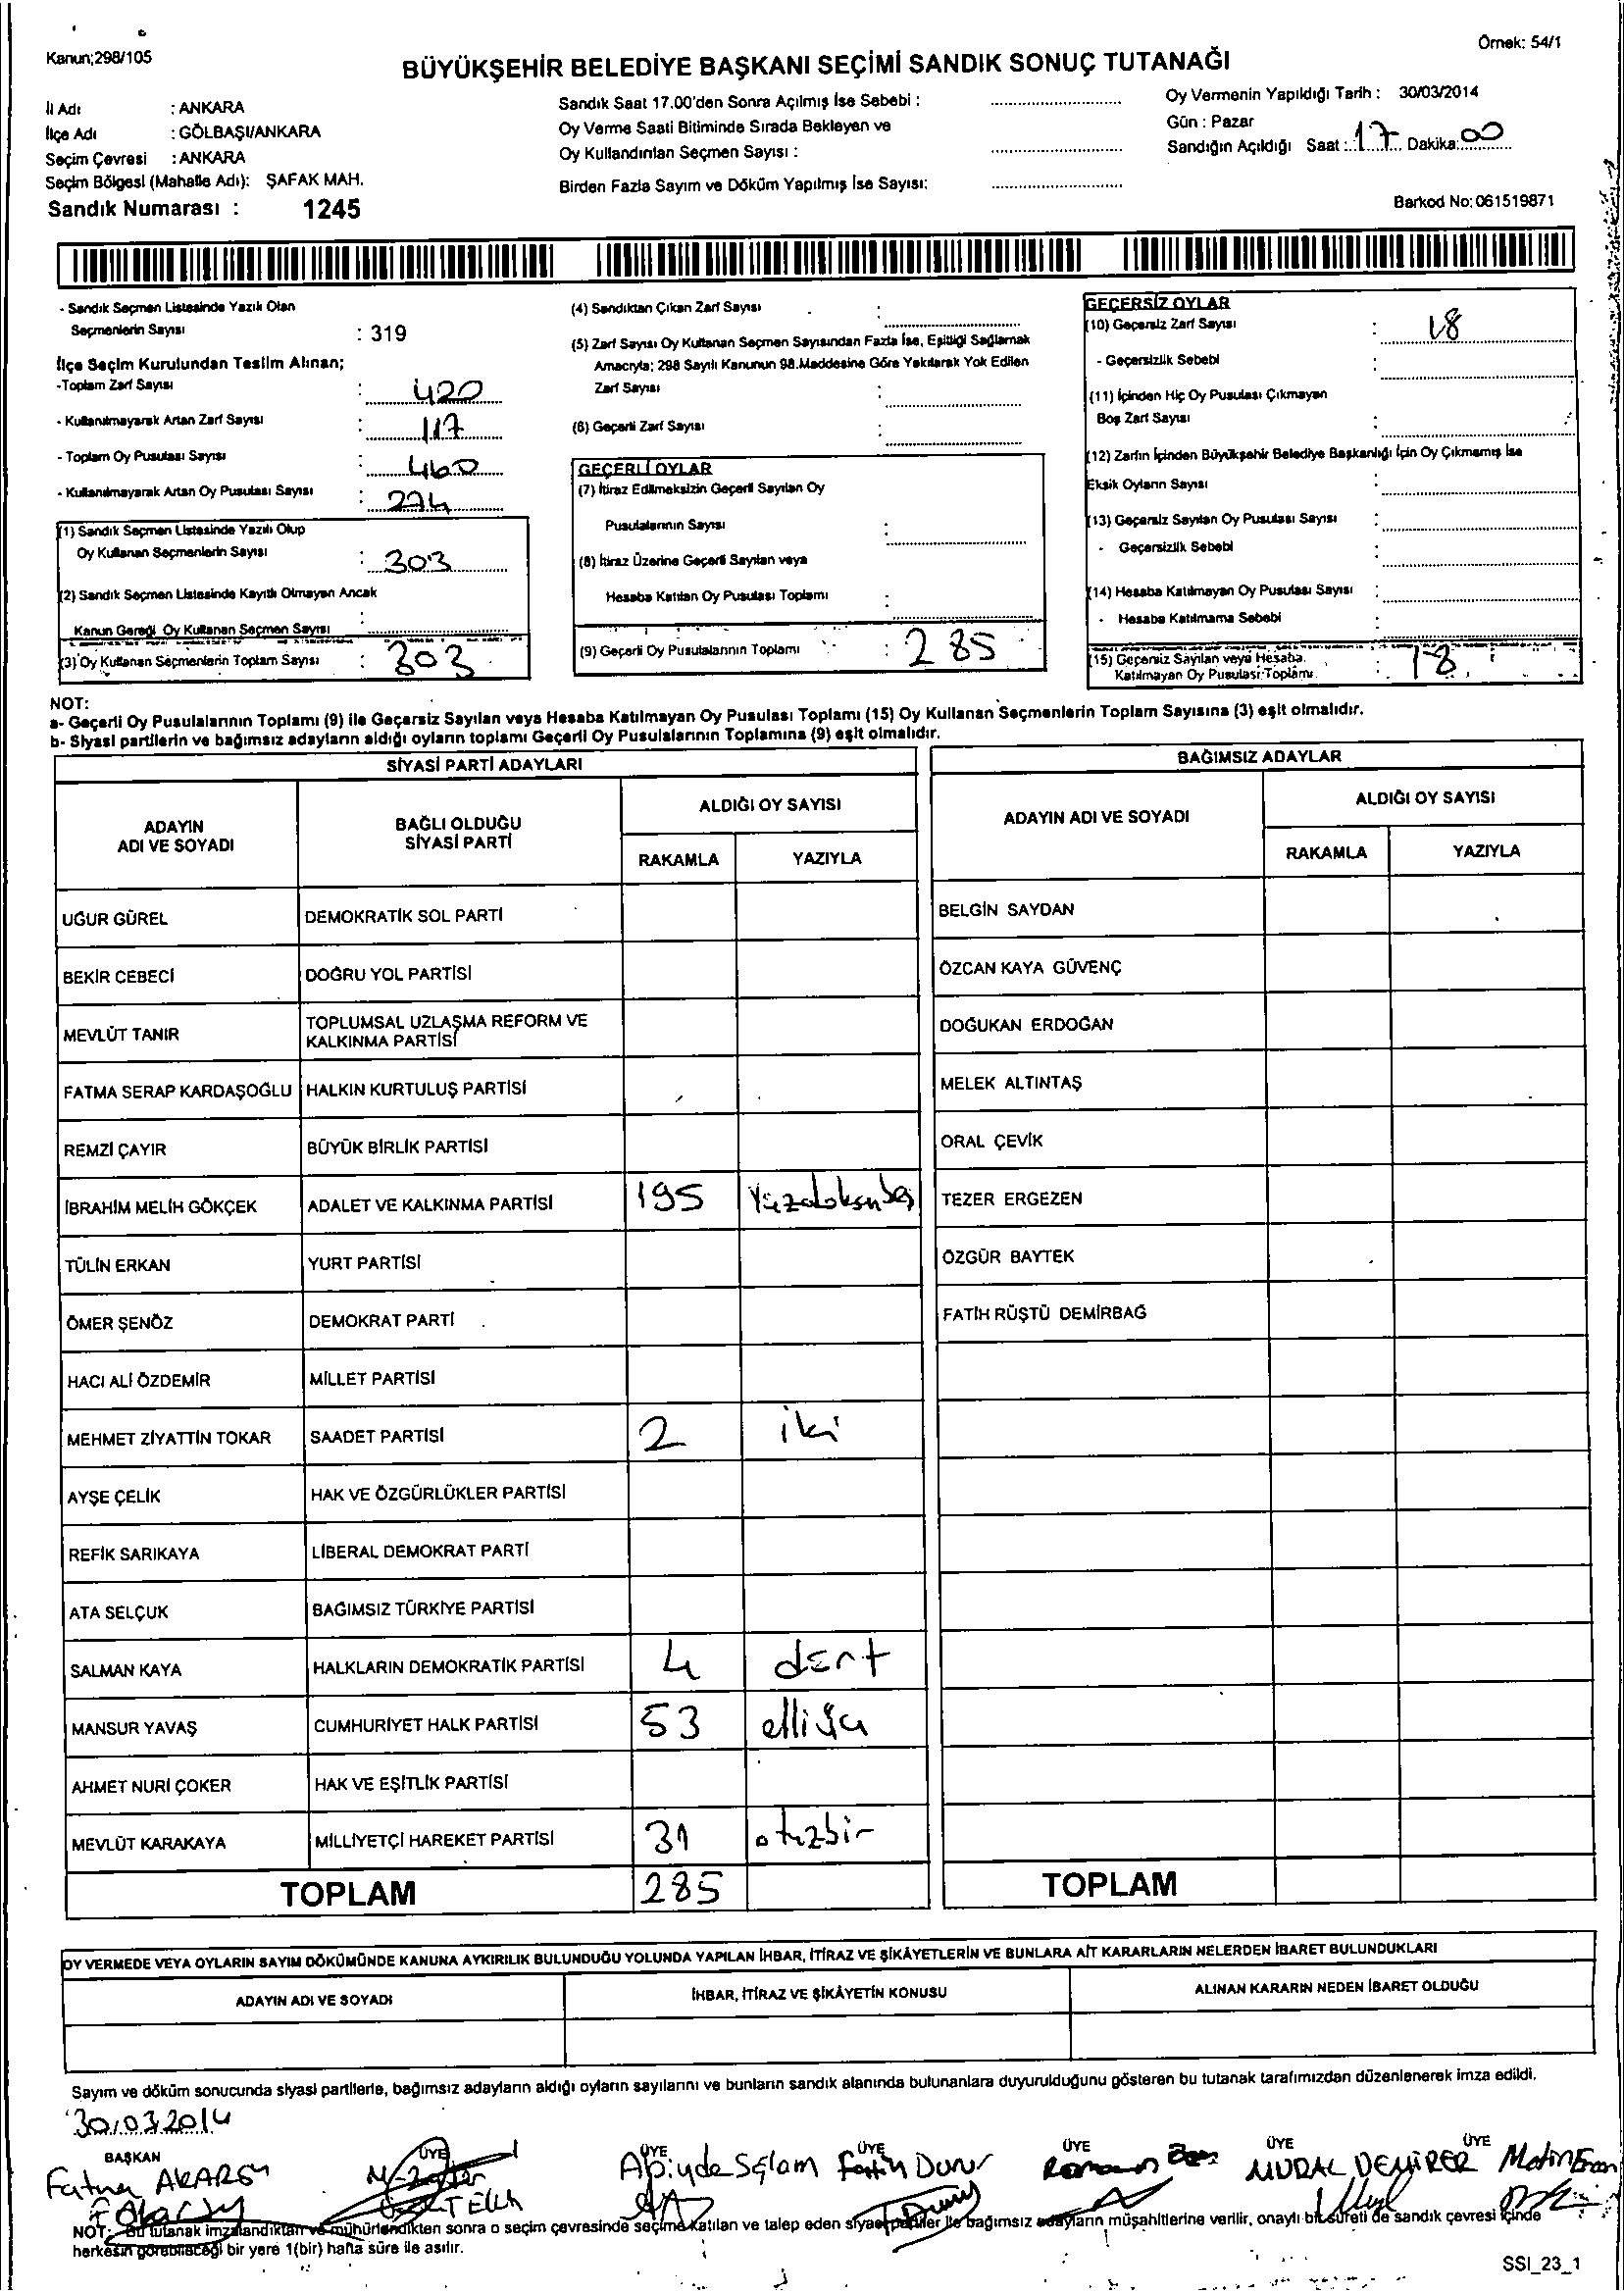 Kanun;298/105
Örnek: 54/1
BÜYÜKŞEHİR BELEDİYE BAŞKANI SEÇİMİ SANDIK SONUÇ TUTANAĞI
İl Adı : ANKARA
İlçe Adı : GÖLBAŞI/ANKARA
Seçim Çevresi : ANKARA
Seçim Bölgesi (Mahalle Adı): ŞAFAK MAH.
Sandık Numarası : 1245
Sandık Saat 17.00'den Sonra Açılmış İse Sebebi :
Oy Verme Saati Bitiminde Sırada Bekleyen ve
Oy Kullandırılan Seçmen Sayısı :
Birden Fazla Sayım ve Döküm Yapılmış İse Sayısı:
Oy Vermenin Yapıldığı Tarih : 30/03/2014
Gün : Pazar
Sandığın Açıldığı Saat : 17 Dakika: 00
Barkod No: 061519871
- Sandık Seçmen Listesinde Yazılı Olan
Seçmenlerin Sayısı : 319
İlçe Seçim Kurulundan Teslim Alınan;
-Toplam Zarf Sayısı : 420
- Kullanılmayarak Artan Zarf Sayısı : 117
- Toplam Oy Pusulası Sayısı : 460
- Kullanılmayarak Artan Oy Pusulası Sayısı :
(1) Sandık Seçmen Listesinde Yazılı Olup
Oy Kullanan Seçmenlerin Sayısı : 303
(2) Sandık Seçmen Listesinde Kayıtlı Olmayan Ancak
Kanun Gereği Oy Kullanan Seçmen Sayısı :
(3) Oy Kullanan Seçmenlerin Toplam Sayısı : 303
(4) Sandıktan Çıkan Zarf Sayısı :
(5) Zarf Sayısı Oy Kullanan Seçmen Sayısından Fazla İse, Eşitliği Sağlamak
Amacıyla; 298 Sayılı Kanunun 98.Maddesine Göre Yakılarak Yok Edilen
Zarf Sayısı :
(6) Geçerli Zarf Sayısı :
GEÇERLİ OYLAR
(7) İtiraz Edilmeksizin Geçerli Sayılan Oy
Pusulalarının Sayısı :
(8) İtiraz Üzerine Geçerli Sayılan veya
Hesaba Katılan Oy Pusulası Toplamı :
(9) Geçerli Oy Pusulalarının Toplamı : 285
GEÇERSİZ OYLAR
(10) Geçersiz Zarf Sayısı : 18
- Geçersizlik Sebebi :
(11) İçinden Hiç Oy Pusulası Çıkmayan
Boş Zarf Sayısı :
(12) Zarfın İçinden Büyükşehir Belediye Başkanlığı İçin Oy Çıkmamış İse
Eksik Oyların Sayısı :
(13) Geçersiz Sayılan Oy Pusulası Sayısı :
- Geçersizlik Sebebi :
(14) Hesaba Katılmayan Oy Pusulası Sayısı :
- Hesaba Katılmama Sebebi :
(15) Geçersiz Sayılan veya Hesaba
Katılmayan Oy Pusulası Toplamı : 18
NOT:
a- Geçerli Oy Pusulalarının Toplamı (9) ile Geçersiz Sayılan veya Hesaba Katılmayan Oy Pusulası Toplamı (15) Oy Kullanan Seçmenlerin Toplam Sayısına (3) eşit olmalıdır.
b- Siyasi partilerin ve bağımsız adayların aldığı oyların toplamı Geçerli Oy Pusulalarının Toplamına (9) eşit olmalıdır.
SİYASİ PARTİ ADAYLARI
ADAYIN
ADI VE SOYADI
BAĞLI OLDUĞU
SİYASİ PARTİ
ALDIĞI OY SAYISI
RAKAMLA YAZIYLA
UĞUR GÜREL DEMOKRATİK SOL PARTİ
BEKİR CEBECİ DOĞRU YOL PARTİSİ
MEVLÜT TANIR TOPLUMSAL UZLAŞMA REFORM VE
KALKINMA PARTİSİ
FATMA SERAP KARDAŞOĞLU HALKIN KURTULUŞ PARTİSİ
REMZİ ÇAYIR BÜYÜK BİRLİK PARTİSİ
İBRAHİM MELİH GÖKÇEK ADALET VE KALKINMA PARTİSİ 195
TÜLİN ERKAN YURT PARTİSİ
ÖMER ŞENÖZ DEMOKRAT PARTİ
HACI ALİ ÖZDEMİR MİLLET PARTİSİ
MEHMET ZİYATTİN TOKAR SAADET PARTİSİ 2 iki
AYŞE ÇELİK HAK VE ÖZGÜRLÜKLER PARTİSİ
REFİK SARIKAYA LİBERAL DEMOKRAT PARTİ
ATA SELÇUK BAĞIMSIZ TÜRKİYE PARTİSİ
SALMAN KAYA HALKLARIN DEMOKRATİK PARTİSİ 4 dört
MANSUR YAVAŞ CUMHURİYET HALK PARTİSİ 53 elliüç
AHMET NURİ ÇOKER HAK VE EŞİTLİK PARTİSİ
MEVLÜT KARAKAYA MİLLİYETÇİ HAREKET PARTİSİ 31 otuzbir
TOPLAM 285
BAĞIMSIZ ADAYLAR
ADAYIN ADI VE SOYADI
ALDIĞI OY SAYISI
RAKAMLA YAZIYLA
BELGİN SAYDAN
ÖZCAN KAYA GÜVENÇ
DOĞUKAN ERDOĞAN
MELEK ALTINTAŞ
ORAL ÇEVİK
TEZER ERGEZEN
ÖZGÜR BAYTEK
FATİH RÜŞTÜ DEMİRBAĞ
TOPLAM
OY VERMEDE VEYA OYLARIN SAYIM DÖKÜMÜNDE KANUNA AYKIRILIK BULUNDUĞU YOLUNDA YAPILAN İHBAR, İTİRAZ VE ŞİKÂYETLERİN VE BUNLARA AİT KARARLARIN NELERDEN İBARET BULUNDUKLARI
ADAYIN ADI VE SOYADI İHBAR, İTİRAZ VE ŞİKÂYETİN KONUSU ALINAN KARARIN NEDEN İBARET OLDUĞU
Sayım ve döküm sonucunda siyasi partilerle, bağımsız adayların aldığı oyların sayılarını ve bunların sandık alanında bulunanlara duyurulduğunu gösteren bu tutanak tarafımızdan düzenlenerek imza edildi.
30.03.2014
BAŞKAN ÜYE ÜYE ÜYE ÜYE ÜYE ÜYE
Fatma Fatih MURAL DEMİRER Metin
NOT: Bu tutanak imzalandıktan ve mühürlendikten sonra o seçim çevresinde seçime katılan ve talep eden siyasi partiler ile bağımsız adayların müşahitlerine verilir, onaylı bir sureti de sandık çevresi içinde
herkesin görebileceği bir yere 1(bir) hafta süre ile asılır.
SSI_23_1